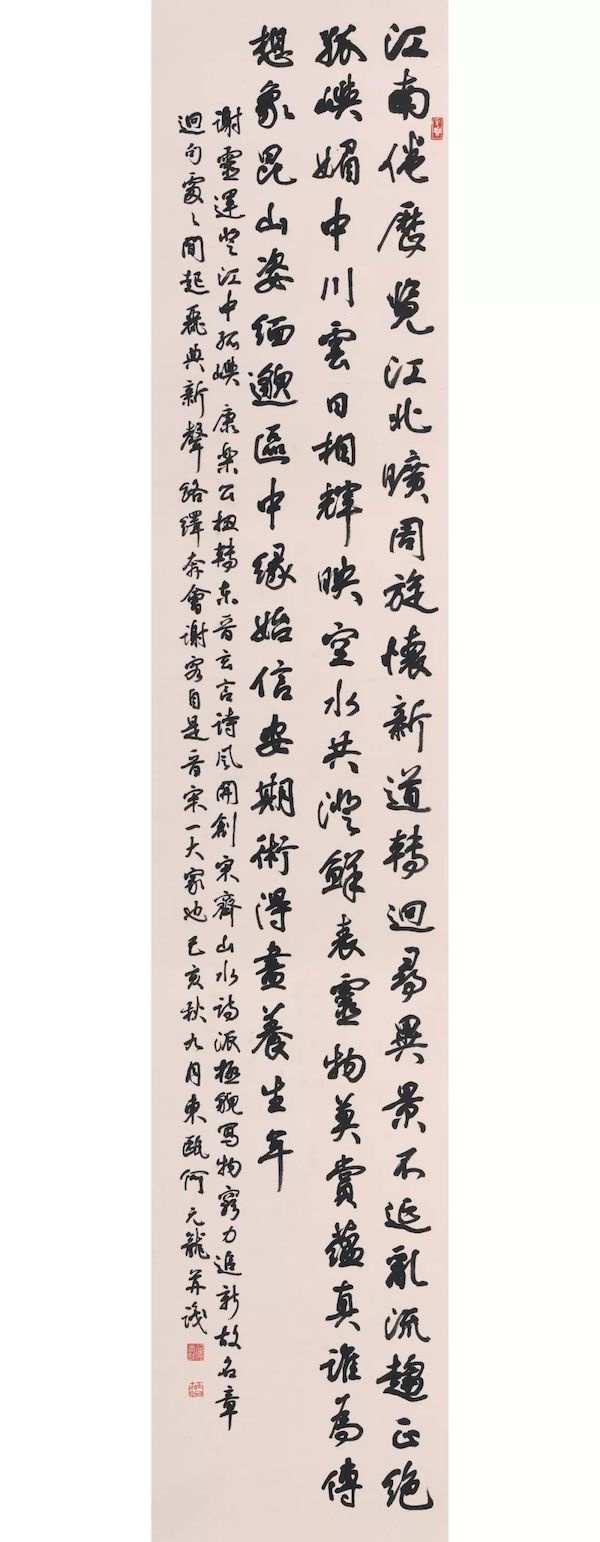 江南倦歷覽江北曠周旋懷新道轉迥尋異景不延亂流趨正絕
孤嶼媚中川雲日相輝映空水共澄鮮表靈物莫賞蘊真誰為傳
想象昆山姿緬邈區中緣始信安期術得盡養生年
謝靈運登江中孤嶼 康樂公扭轉東晉玄言詩風開創宋齊山水詩派極貌寫物窮力追新故名章
迥句處〻間起麗典新聲絡繹奔會謝客自是晉宋一大家也己亥秋九月東甌何元龍并識